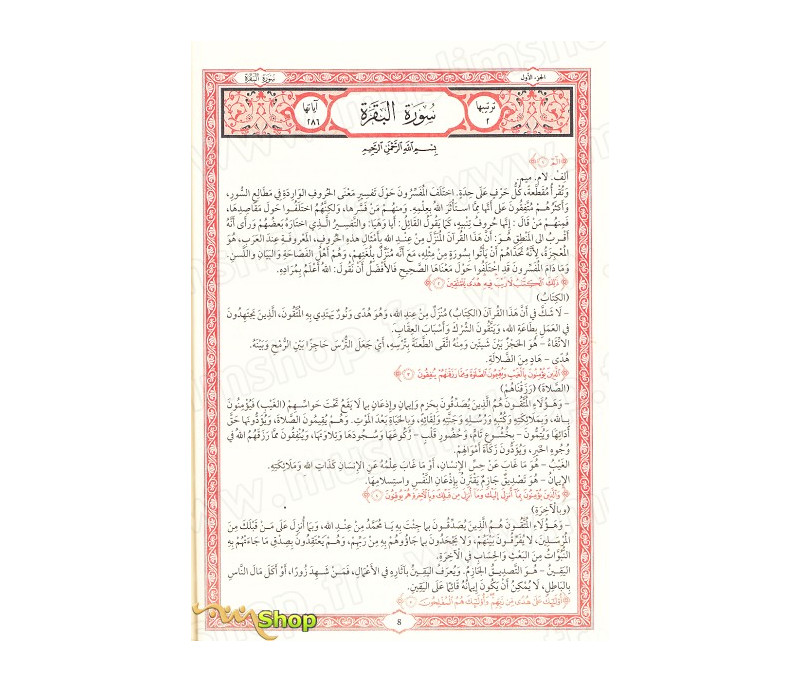 الجزء الأول
سورة البقرة
ترتيبها
٢
سُورَةُ البَقَرَةِ
آياتها
٢٨٦
بِسْمِ اللهِ الرَّحْمَنِ الرَّحِيمِ
﴿الٓمٓ ١﴾
أَلِفْ. لاَم. مِيم.
وَتُقْرَأُ مُقَطَّعَةً، كُلُّ حَرْفٍ عَلَى حِدَةٍ. اخْتَلَفَ المُفَسِّرُونَ حَوْلَ تَفْسِيرِ مَعْنَى الحُرُوفِ الوَارِدَةِ فِي مَطَالِعِ السُّوَرِ،
وَأَكْثَرُهُمْ مُتَّفِقُونَ عَلَى أَنَّهَا مِمَّا اسْتَأْثَرَ اللهُ بِعِلْمِهِ. وَمِنْهُمْ مَنْ فَسَّرَهَا، وَلكِنَّهُمْ اخْتَلَفُوا حَوْلَ مَقَاصِدِهَا،
فَمِنْهُمْ مَنْ قَالَ: إِنَّهَا حُرُوفُ تَنْبِيهٍ، كَمَا يَقُولُ القَائِلُ: أَيَا وَهَيَا: وَالتَّفْسِيرُ الَّذِي اخْتَارَهُ بَعْضُهُمْ وَرَأَى أَنَّهُ
أَقْرَبُ الى المَنْطِقِ هُوَ: أَنَّ هَذَا القُرآنَ المُنَزَّلَ مِنْ عِنْدِ اللهِ بِأَمْثَالِ هذِهِ الحُرُوفِ، المَعْرُوفَةِ عِنْدَ العَرَبِ، هُوَ
المُعْجِزَةُ، لأَنَّهُ تَحَدَّاهُمْ أَنْ يَأْتُوا بِسُورَةٍ مِنْ مِثْلِهِ، مَعَ أَنَّهُ مُنْزَلٌ بِلُغَتِهِمْ، وَهُمْ أَهْلُ الفَصَاحَةِ وَالبَيَانِ وَاللَّسَنِ.
وَمَا دَامَ المُفَسِّرُونَ قَدِ اخْتَلَفُوا حَوْلَ مَعْنَاهَا الصَّحِيحِ فَالأَفْضَلُ أَنْ نَقُولَ: اللهُ أَعْلَمُ بِمُرَادِهِ.
﴿ذَلِكَ الْكِتَٰبُ لَا رَيْبَ فِيهِ هُدًى لِلْمُتَّقِينَ ٢﴾
(الكِتَابُ)
– لاَ شَكَّ فِي أَنَّ هَذَا القُرآنَ (الكِتَابَ) مُنْزَلٌ مِنْ عِنْدِ اللهِ، وَهُوَ هُدًى وَنُورٌ يَهْتَدِي بِهِ المُتَّقُونَ، الَّذِينَ يَجْتَهِدُونَ
فِي العَمَلِ بِطَاعَةِ اللهِ، وَيَتَّقُونَ الشِّرْكَ وَأَسْبَابَ العِقَابِ.
الاتِّقَاءُ – هُوَ الحَجْزُ بَيْنَ شَيئَينِ وَمِنْهُ اتَّقَى الطَّعْنَةَ بِتُرْسِهِ، أَيْ جَعَلَ التُّرْسَ حَاجِزًا بَيْنَ الرُّمْحِ وَبَيْنَهُ.
هُدًى – هَادٍ مِنَ الضَّلاَلَةِ.
﴿الَّذِينَ يُؤْمِنُونَ بِالْغَيْبِ وَيُقِيمُونَ الصَّلَوٰةَ وَمِمَّا رَزَقْنَٰهُمْ يُنفِقُونَ ٣﴾
(الصَّلاَةَ) (رَزَقْنَاهُمْ)
– وَهَؤُلاَءِ المُتَّقُونَ هُمُ الَّذِينَ يُصَدِّقُونَ بِحَزْمٍ وَإِيمَانٍ وَإِذْعَانٍ بِمَا لاَ يَقَعُ تَحْتَ حَوَاسِّهِمْ (الغَيْبِ) فَيُؤْمِنُونَ
بِاللهِ، وَبِمَلاَئِكَتِهِ وَكُتُبِهِ وَرُسُلِهِ وَجَنَّتِهِ وَلِقَائِهِ، وَبِالحَيَاةِ بَعْدَ المَوْتِ. وَهُمْ يُقِيمُونَ الصَّلاَةَ، وَيُؤَدُّونَهَا حَقَّ
أَدَائِهَا وَيُتِمُّونَ – بِخُشُوعٍ تَامٍّ، وَحُضُورِ قَلْبٍ – رُكُوعَهَا وَسُجُودَهَا وَتِلاَوَتَهَا، وَيُنْفِقُونَ مِمَّا رَزَقَهُمُ اللهُ فِي
وُجُوهِ الخَيْرِ، وَيُؤَدُّونَ زَكَاةَ أَمْوَالِهِمْ.
الغَيْبُ – هُوَ مَا غَابَ عَنْ حِسِّ الإِنْسَانِ، أَوْ مَا غَابَ عِلْمُهُ عَنِ الإِنْسَانِ كَذَاتِ اللهِ وَمَلاَئِكَتِهِ.
الإِيمَانُ – هُوَ تَصْدِيقٌ جَازِمٌ يَقْتَرِنُ بِإِذْعَانِ النَّفْسِ وَاسْتِسْلاَمِهَا.
﴿وَالَّذِينَ يُؤْمِنُونَ بِمَا أُنزِلَ إِلَيْكَ وَمَا أُنزِلَ مِن قَبْلِكَ وَبِالْآخِرَةِ هُمْ يُوقِنُونَ ٤﴾
(وبِالآخِرَةِ)
– وَهَؤُلاَءِ المُتَّقُونَ هُمُ الَّذِينَ يُصَدِّقُونَ بِمَا جِئْتَ بِهِ يَا مُحَمَّدُ مِنْ عِنْدِ اللهِ، وَبِمَا أُنْزِلَ عَلَى مَنْ قَبْلَكَ مِنَ
المُرْسَلِينَ، لاَ يُفَرِّقُونَ بَيْنَهُمْ، وَلاَ يَجْحَدُونَ بِمَا جَاؤُوهُمْ بِهِ مِنْ رَبِّهِمْ، وَهُمْ يَعْتَقِدُونَ بِصِدْقِ مَا جَاءَتْهُمْ بِهِ
النُّبُوَّاتُ مِنَ البَعْثِ وَالحِسَابِ فِي الآخِرَةِ.
اليَقِينُ – هُوَ التَّصْدِيقُ الجَازِمُ. وَيُعْرَفُ اليَقِينُ بِآثَارِهِ فِي الأَعْمَالِ، فَمَنْ شَهِدَ زُورًا، أَوْ أَكَلَ مَالَ النَّاسِ
بِالبَاطِلِ، لاَ يُمْكِنُ أَنْ يَكُونَ إِيمَانُهُ قَائِمًا عَلَى اليَقِينِ.
﴿أُولَٰئِكَ عَلَىٰ هُدًى مِن رَبِّهِمْ وَأُولَٰئِكَ هُمُ الْمُفْلِحُونَ ٥﴾
8
Shop